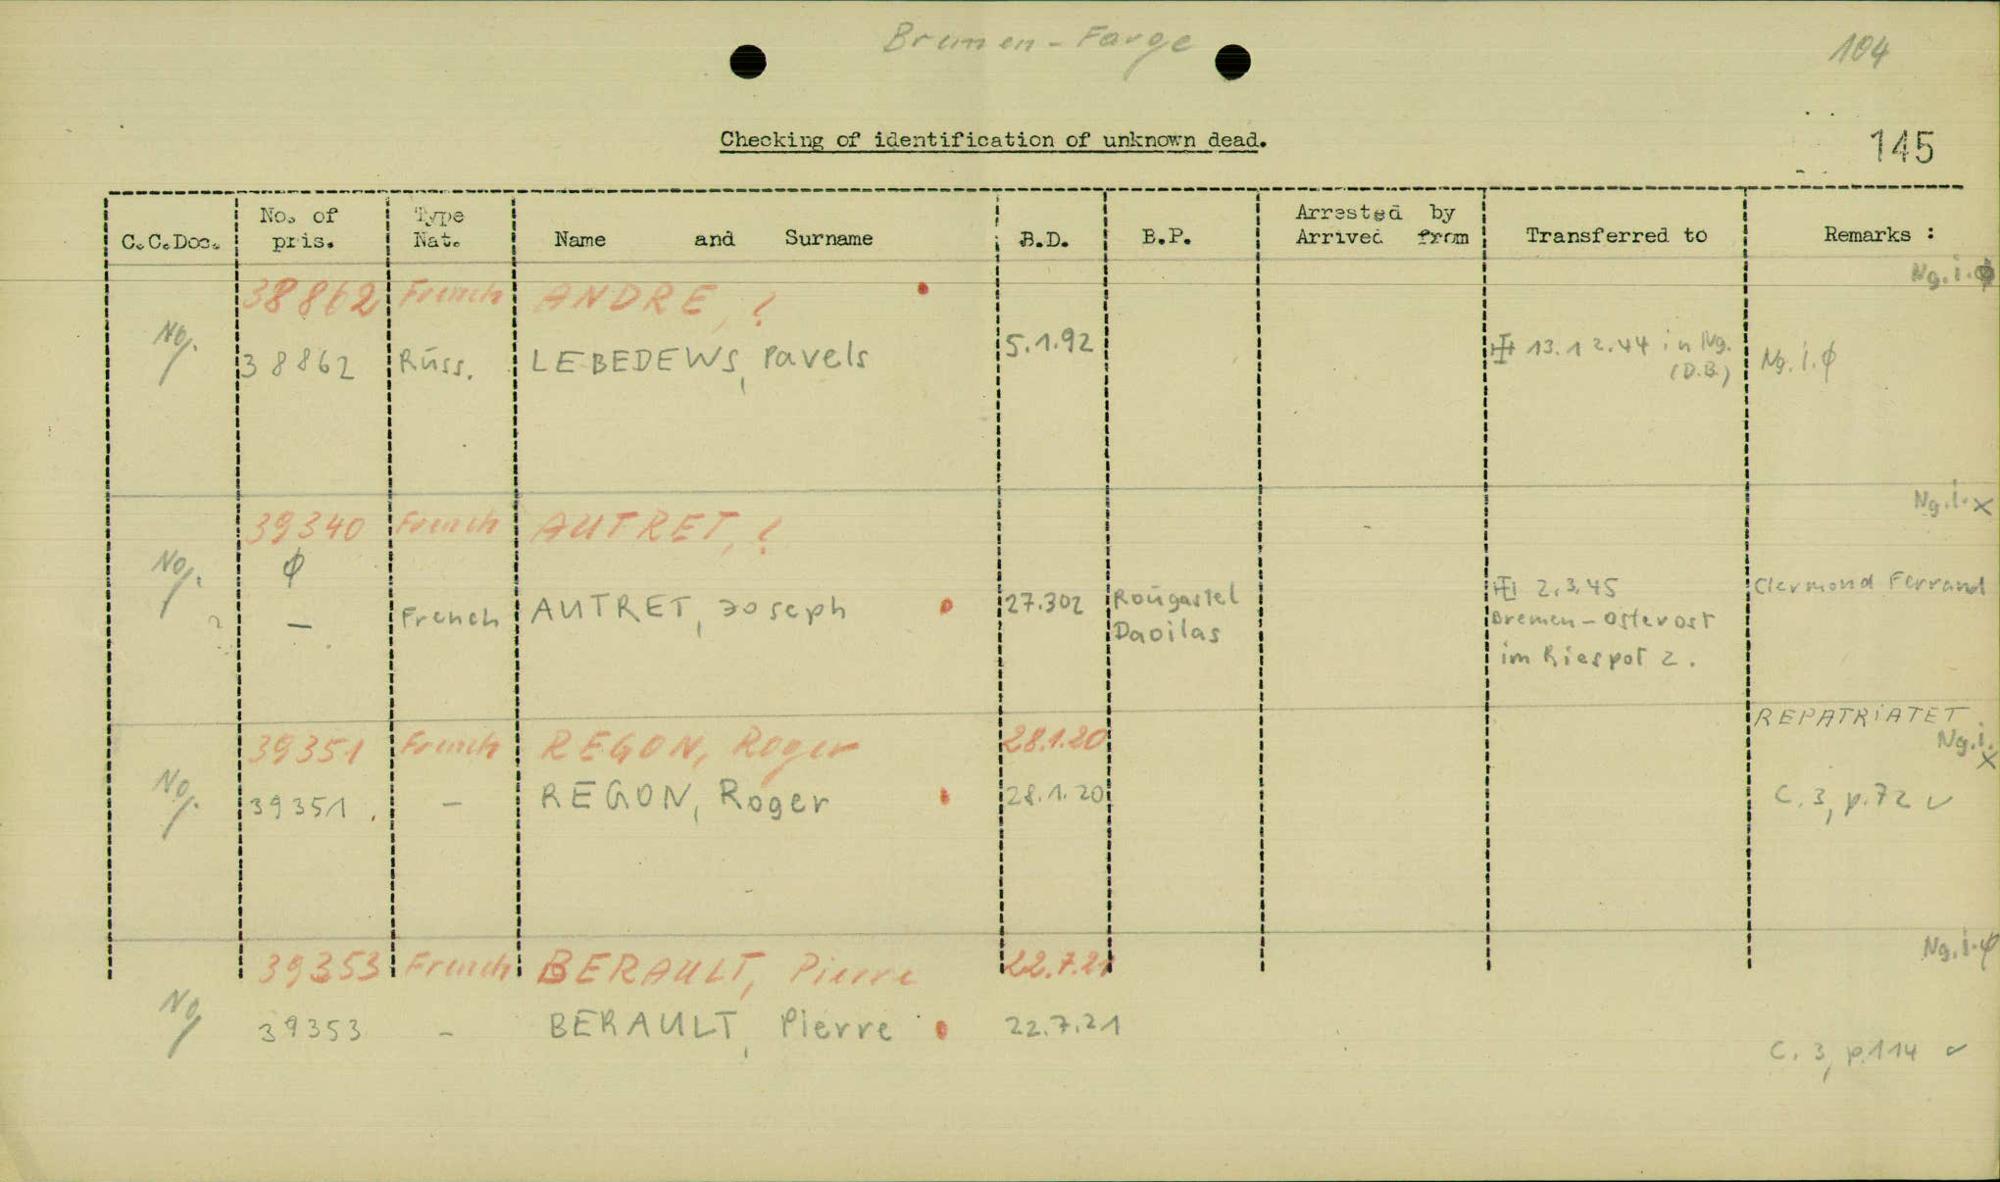 Bremen-Farge
104
Checking of identification of unknown dead.
145
C.C.Doc. No. of pris. Type Nat. Name and Surname B.D. B.P. Arrested by Arrived from Transferred to Remarks :
Ng.i.ϕ
38862 French ANDRE, ?
No. 38862 Rŭss. LEBEDEWS, Pavels 5.1.92 13.12.44 in Ng. (D.B.) Ng.i.ϕ
Ng.i.x
39340 French AUTRET, ?
No. ϕ
? — French AUTRET, Joseph 27.302 Roŭgastel 2.3.45 Clermond Ferrand
Daoilas Bremen-Osterort
im Riespot 2.
REPATRIATET
39351 French REGON, Roger 28.1.20 Ng.i.x
No. 39351. — REGON, Roger 28.1.20 C.3, p.72 ✓
39353 French BERAULT, Pierre 22.7.21 Ng.i.ϕ
No 39353 - BERAULT, Pierre 22.7.21
C. 3, p.114 ✓